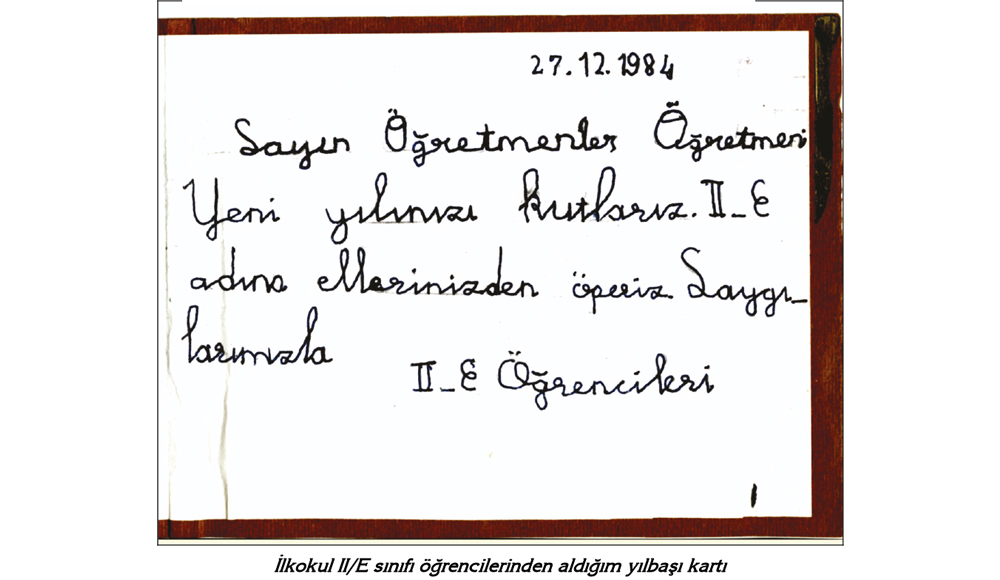 27.12.1984
Sayın Öğretmenler Öğretmeni
Yeni yılınızı kutlarız. II_E
adına ellerinizden öperiz. Saygı_
larımızla
II_E Öğrencileri
İlkokul II/E sınıfı öğrencilerinden aldığım yılbaşı kartı